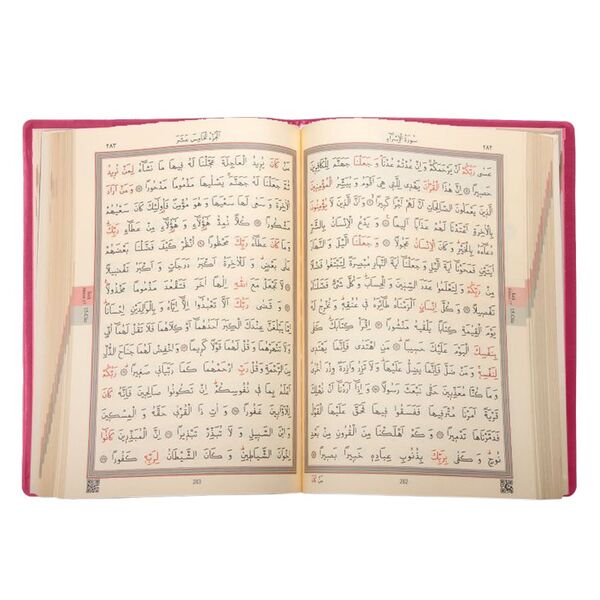 سورة الإسراء
٢٨٢
عَسٰى رَبُّكُمْ اَنْ يَرْحَمَكُمْ وَاِنْ عُدْتُمْ عُدْنَا وَجَعَلْنَا جَهَنَّمَ لِلْكَافِرِينَ
حَصِيرًا اِنَّ هٰذَا الْقُرْاٰنَ يَهْدِي لِلَّتِي هِيَ اَقْوَمُ وَيُبَشِّرُ الْمُؤْمِنِينَ
الَّذِينَ يَعْمَلُونَ الصَّالِحَاتِ اَنَّ لَهُمْ اَجْرًا كَبِيرًا وَاَنَّ الَّذِينَ لَا يُؤْمِنُونَ
بِالْاٰخِرَةِ اَعْتَدْنَا لَهُمْ عَذَابًا اَلِيمًا وَيَدْعُ الْاِنْسَانُ بِالشَّرِّ
دُعَاءَهُ بِالْخَيْرِ وَكَانَ الْاِنْسَانُ عَجُولًا وَجَعَلْنَا الَّيْلَ وَالنَّهَارَ
اٰيَتَيْنِ فَمَحَوْنَا اٰيَةَ الَّيْلِ وَجَعَلْنَا اٰيَةَ النَّهَارِ مُبْصِرَةً لِتَبْتَغُوا فَضْلًا
مِنْ رَبِّكُمْ وَلِتَعْلَمُوا عَدَدَ السِّنِينَ وَالْحِسَابَ وَكُلَّ شَيْءٍ فَصَّلْنَاهُ
تَفْصِيلًا وَكُلَّ اِنْسَانٍ اَلْزَمْنَاهُ طَائِرَهُ فِي عُنُقِهِ وَنُخْرِجُ لَهُ
يَوْمَ الْقِيٰمَةِ كِتَابًا يَلْقٰيهُ مَنْشُورًا اِقْرَأْ كِتَابَكَ كَفٰى
بِنَفْسِكَ الْيَوْمَ عَلَيْكَ حَسِيبًا مَنِ اهْتَدٰى فَاِنَّمَا يَهْتَدِي
لِنَفْسِهِ وَمَنْ ضَلَّ فَاِنَّمَا يَضِلُّ عَلَيْهَا وَلَا تَزِرُ وَازِرَةٌ وِزْرَ اُخْرٰى
وَمَا كُنَّا مُعَذِّبِينَ حَتّٰى نَبْعَثَ رَسُولًا وَاِذَا اَرَدْنَا اَنْ نُهْلِكَ
قَرْيَةً اَمَرْنَا مُتْرَفِيهَا فَفَسَقُوا فِيهَا فَحَقَّ عَلَيْهَا الْقَوْلُ
فَدَمَّرْنَاهَا تَدْمِيرًا وَكَمْ اَهْلَكْنَا مِنَ الْقُرُونِ مِنْ بَعْدِ
نُوحٍ وَكَفٰى بِرَبِّكَ بِذُنُوبِ عِبَادِهِ خَبِيرًا بَصِيرًا
282
الجزء الخامس عشر
٢٨٣
مَنْ كَانَ يُرِيدُ الْعَاجِلَةَ عَجَّلْنَا لَهُ فِيهَا مَا نَشَاءُ لِمَنْ نُرِيدُ
ثُمَّ جَعَلْنَا لَهُ جَهَنَّمَ يَصْلٰيهَا مَذْمُومًا مَدْحُورًا وَمَنْ اَرَادَ
الْاٰخِرَةَ وَسَعٰى لَهَا سَعْيَهَا وَهُوَ مُؤْمِنٌ فَاُولٰئِكَ كَانَ سَعْيُهُمْ
مَشْكُورًا كُلًّا نُمِدُّ هٰؤُلَاءِ وَهٰؤُلَاءِ مِنْ عَطَاءِ رَبِّكَ
وَمَا كَانَ عَطَاءُ رَبِّكَ مَحْظُورًا اُنْظُرْ كَيْفَ فَضَّلْنَا بَعْضَهُمْ
عَلٰى بَعْضٍ وَلَلْاٰخِرَةُ اَكْبَرُ دَرَجَاتٍ وَاَكْبَرُ تَفْضِيلًا
لَا تَجْعَلْ مَعَ اللّٰهِ اِلٰهًا اٰخَرَ فَتَقْعُدَ مَذْمُومًا مَخْذُولًا
وَقَضٰى رَبُّكَ اَلَّا تَعْبُدُوا اِلَّا اِيَّاهُ وَبِالْوَالِدَيْنِ اِحْسَانًا
اِمَّا يَبْلُغَنَّ عِنْدَكَ الْكِبَرَ اَحَدُهُمَا اَوْ كِلَاهُمَا فَلَا تَقُلْ لَهُمَا اُفٍّ
وَلَا تَنْهَرْهُمَا وَقُلْ لَهُمَا قَوْلًا كَرِيمًا وَاخْفِضْ لَهُمَا جَنَاحَ الذُّلِّ
مِنَ الرَّحْمَةِ وَقُلْ رَبِّ ارْحَمْهُمَا كَمَا رَبَّيَانِي صَغِيرًا رَبُّكُمْ
اَعْلَمُ بِمَا فِي نُفُوسِكُمْ اِنْ تَكُونُوا صَالِحِينَ فَاِنَّهُ كَانَ
لِلْاَوَّابِينَ غَفُورًا وَاٰتِ ذَا الْقُرْبٰى حَقَّهُ وَالْمِسْكِينَ
وَابْنَ السَّبِيلِ وَلَا تُبَذِّرْ تَبْذِيرًا اِنَّ الْمُبَذِّرِينَ كَانُوا
اِخْوَانَ الشَّيَاطِينِ وَكَانَ الشَّيْطَانُ لِرَبِّهِ كَفُورًا
283